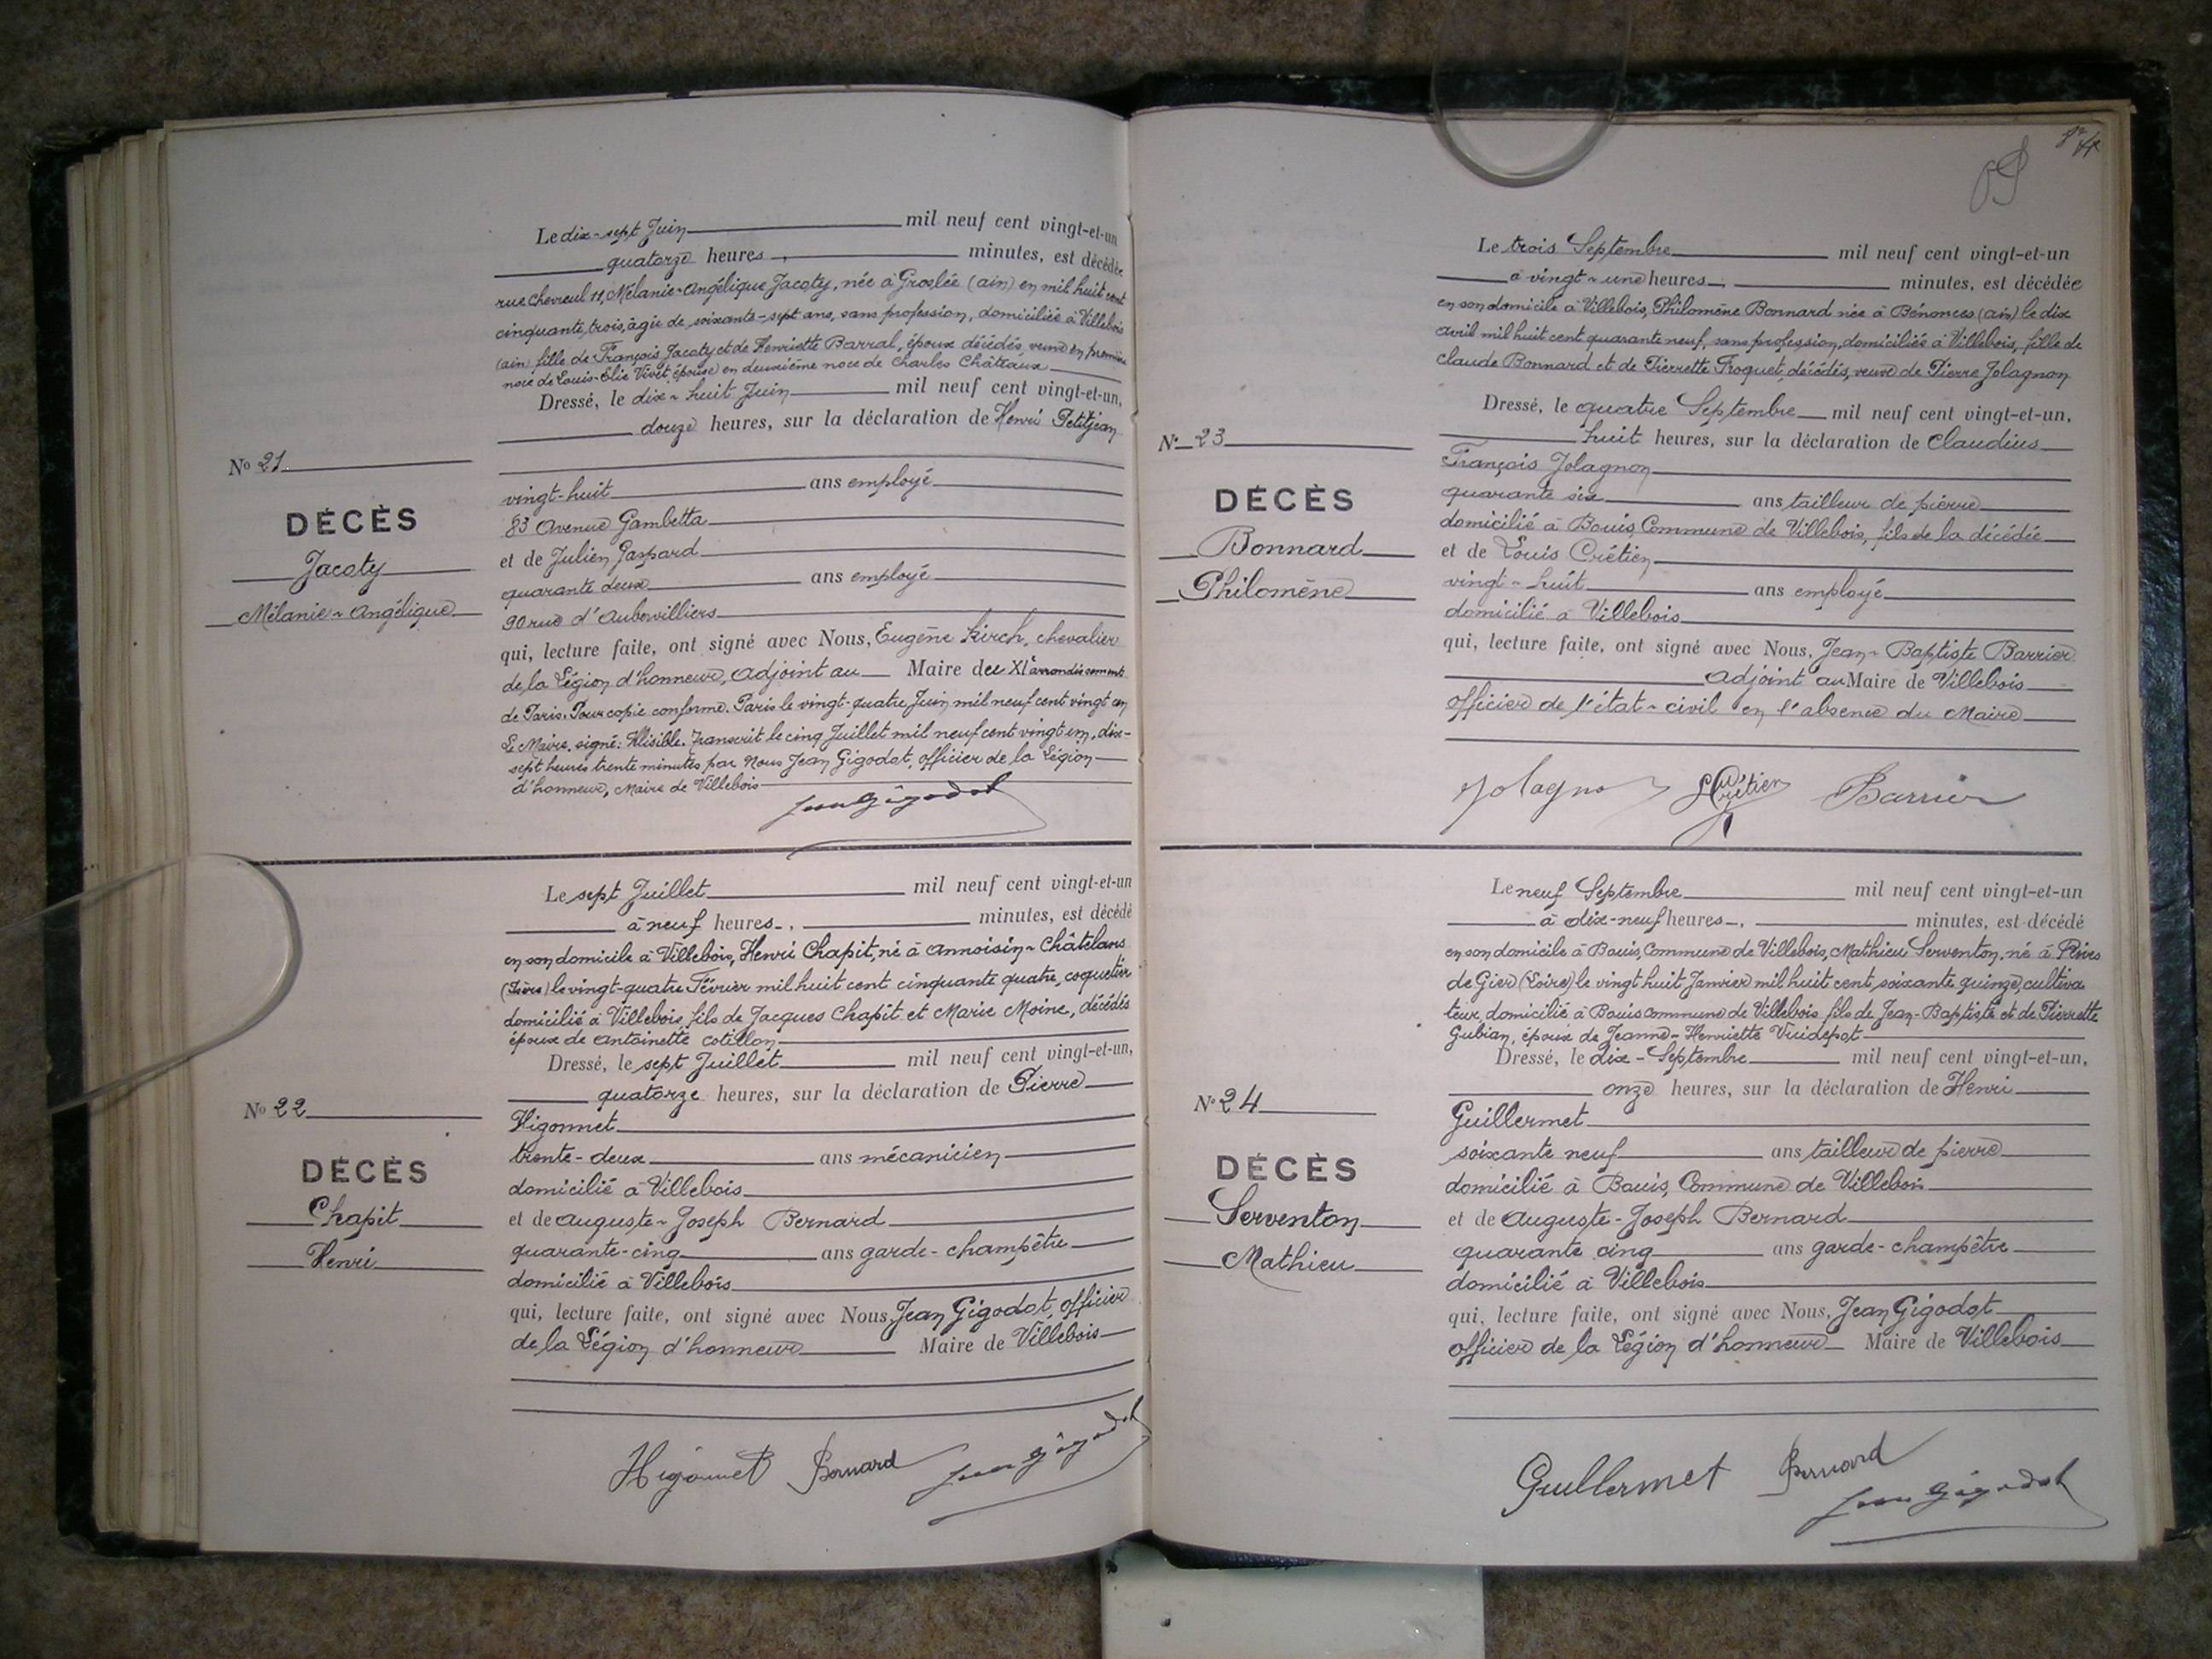 Le dix-sept Juin mil neuf cent vingt-et-un
quatorze heures, minutes, est décédée
rue Chevreul 11, Mélanie-Angélique Jacoty, née à Groslée (ain) en mil huit cent
cinquante, trois, âgée de soixante-sept ans, sans profession, domiciliée à Villebois
(ain) fille de François Jacoty et de Henriette Barral, époux décédés, veuve en première
noce de Louis-Elie Vivet épouse en deuxième noce de Charles Châteaux
Dressé, le dix-huit Juin mil neuf cent vingt-et-un,
douze heures, sur la déclaration de Henri Petitjean
No 21
DÉCÈS
Jacoty
Mélanie-Angélique
vingt-huit ans employé
83 Avenue Gambetta
et de Julien Gaspard
quarante deux ans employé
90 rue d'Aubervilliers
qui, lecture faite, ont signé avec Nous, Eugène Kirch, chevalier
de la Légion d'honneur, adjoint au Maire du XIe arrondissement
de Paris. Pour copie conforme. Paris le vingt-quatre Juin mil neuf cent vingt un
Le Maire. signé: Illisible. Transcrit le cinq Juillet mil neuf cent vingt un, dix-
sept heures trente minutes par Nous Jean Gigodot, officier de la Légion
d'honneur, Maire de Villebois
Jean Gigodot
Le sept Juillet mil neuf cent vingt-et-un
à neuf heures, minutes, est décédé
en son domicile à Villebois, Henri Chapit, né à Annoisin-Châtelans
(Isère) le vingt-quatre Février mil huit cent cinquante quatre, coquetier
domicilié à Villebois, fils de Jacques Chapit et Marie Moine, décédés
époux de Antoinette Cotillon
Dressé, le sept Juillet mil neuf cent vingt-et-un,
quatorze heures, sur la déclaration de Pierre
No 22
DÉCÈS
Chapit
Henri
Higonnet
trente-deux ans mécanicien
domicilié à Villebois
et de Auguste-Joseph Bernard
quarante-cinq ans garde-champêtre
domicilié à Villebois
qui, lecture faite, ont signé avec Nous, Jean Gigodot, officier
de la Légion d'honneur Maire de Villebois
Higonnet Bernard Jean Gigodot
Le trois Septembre mil neuf cent vingt-et-un
à vingt-une heures, minutes, est décédée
en son domicile à Villebois, Philomène Bonnard née à Bénonces (ain) le dix
avril mil huit cent quarante neuf, sans profession, domiciliée à Villebois, fille de
Claude Bonnard et de Pierrette Froquet, décédés, veuve de Pierre Jolagnon
Dressé, le quatre Septembre mil neuf cent vingt-et-un,
huit heures, sur la déclaration de Claudius
No 23
DÉCÈS
Bonnard
Philomène
François Jolagnon
quarante six ans tailleur de pierre
domicilié à Bouis, Commune de Villebois, fils de la décédée
et de Louis Crétien
vingt-huit ans employé
domicilié à Villebois
qui, lecture faite, ont signé avec Nous, Jean-Baptiste Barrier
adjoint au Maire de Villebois
officier de l'état-civil en l'absence du Maire
Jolagnon Crétien Barrier
Le neuf Septembre mil neuf cent vingt-et-un
à dix-neuf heures, minutes, est décédé
en son domicile à Bouis, Commune de Villebois, Mathieu Serventon, né à Rives
de Gier (Loire) le vingt huit Janvier mil huit cent soixante quinze, cultiva
teur, domicilié à Bouis commune de Villebois fils de Jean-Baptiste et de Pierrette
Gubian, époux de Jeanne-Henriette Vuidepot
Dressé, le dix-Septembre mil neuf cent vingt-et-un,
onze heures, sur la déclaration de Henri
No 24
DÉCÈS
Serventon
Mathieu
Guillermet
soixante neuf ans tailleur de pierre
domicilié à Bouis, Commune de Villebois
et de Auguste-Joseph Bernard
quarante cinq ans garde-champêtre
domicilié à Villebois
qui, lecture faite, ont signé avec Nous, Jean Gigodot
officier de la Légion d'honneur Maire de Villebois
Guillermet Bernard Jean Gigodot